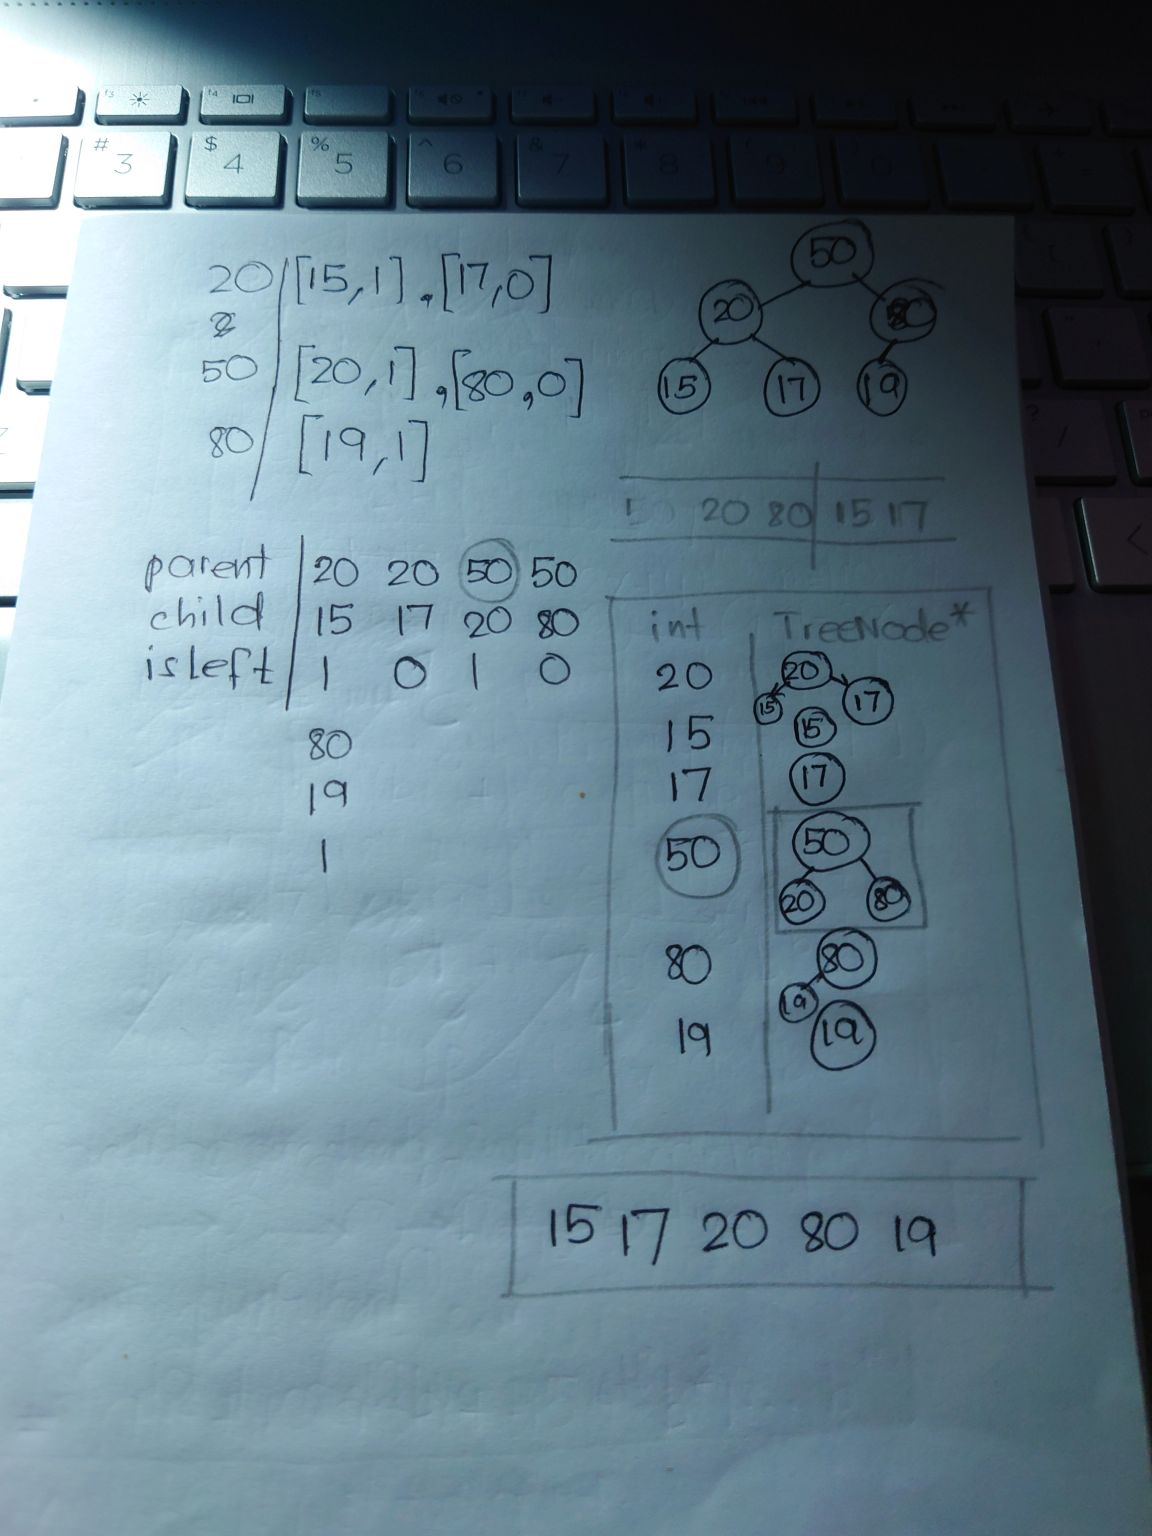 # 3
$ 4
% 5
^ 6
& 7
* 8
( 9
) 0
20 [15,1] , [17,0]
50 [20,1] , [80,0]
80 [19,1]
50
20 80
15 17 19
50 20 80 15 17
parent 20 20 50 50
child 15 17 20 80
isleft 1 0 1 0
80
19
1
int TreeNode*
20 20
15 17
15 15
17 17
50 50
20 80
80 80
19
19 19
15 17 20 80 19